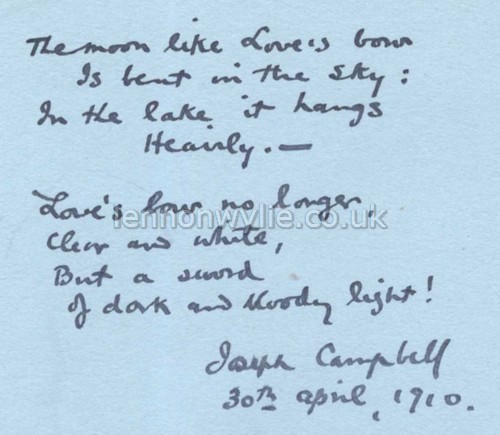 The moon like Love's bow
Is bent in the sky:
In the lake it hangs
Heavily.—
Love's bow no longer,
lennonwylie.co.uk
Clear and white,
But a sword
Of dark and bloody light!
Joseph Campbell
30th April, 1910.